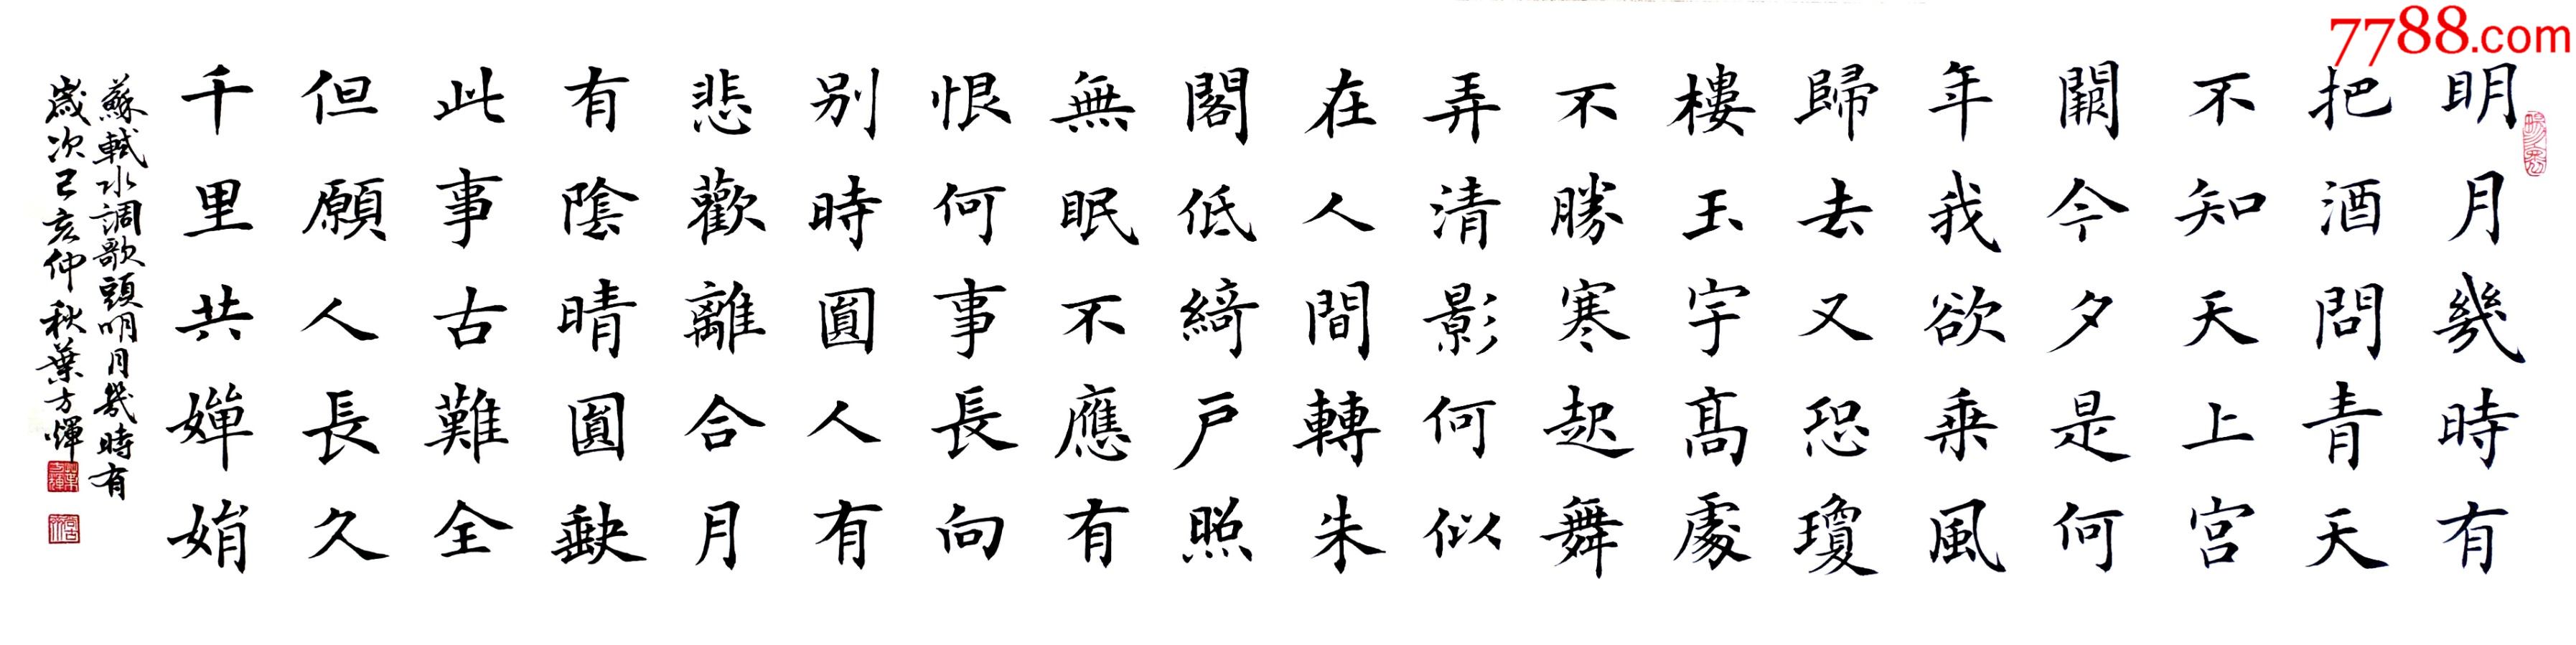 7788.com
明月幾時有
把酒問青天
不知天上宮
闕今夕是何
年我欲乘風
歸去又恐瓊
樓玉宇高處
不勝寒起舞
弄清影何似
在人間轉朱
閣低綺戶照
無眠不應有
恨何事長向
別時圓人有
悲歡離合月
有陰晴圓缺
此事古難全
但願人長久
千里共嬋娟
蘇軾水調歌頭明月幾時有
歲次己亥仲秋葉方輝